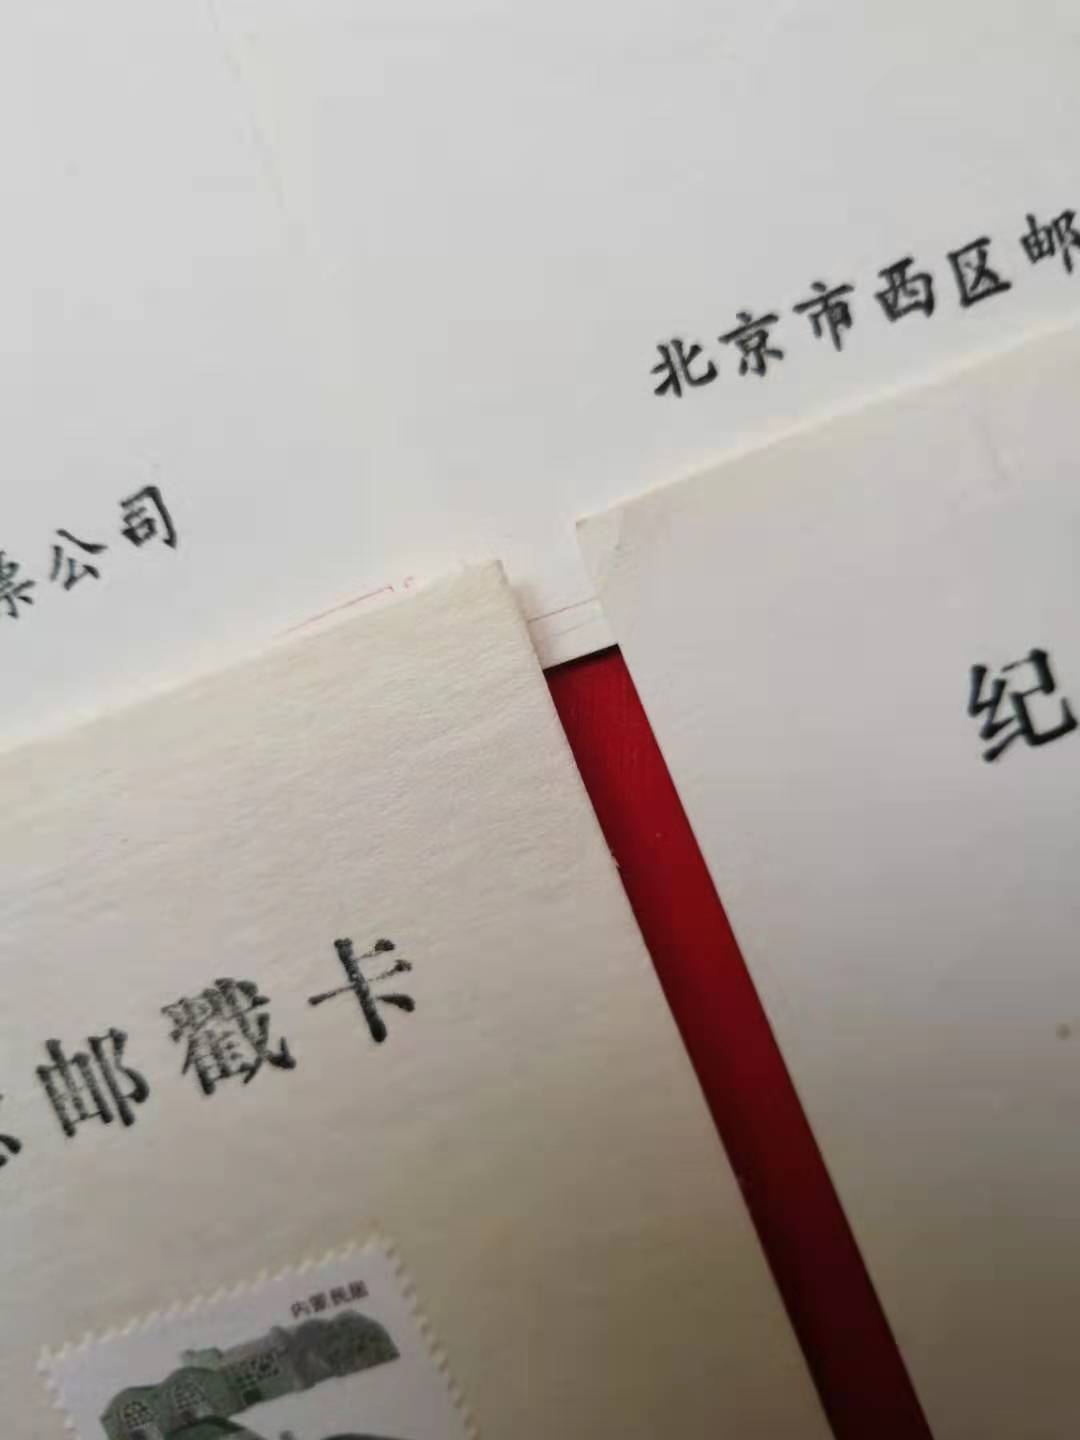 北京市西区邮
票公司
纪
邮戳卡
内蒙民居